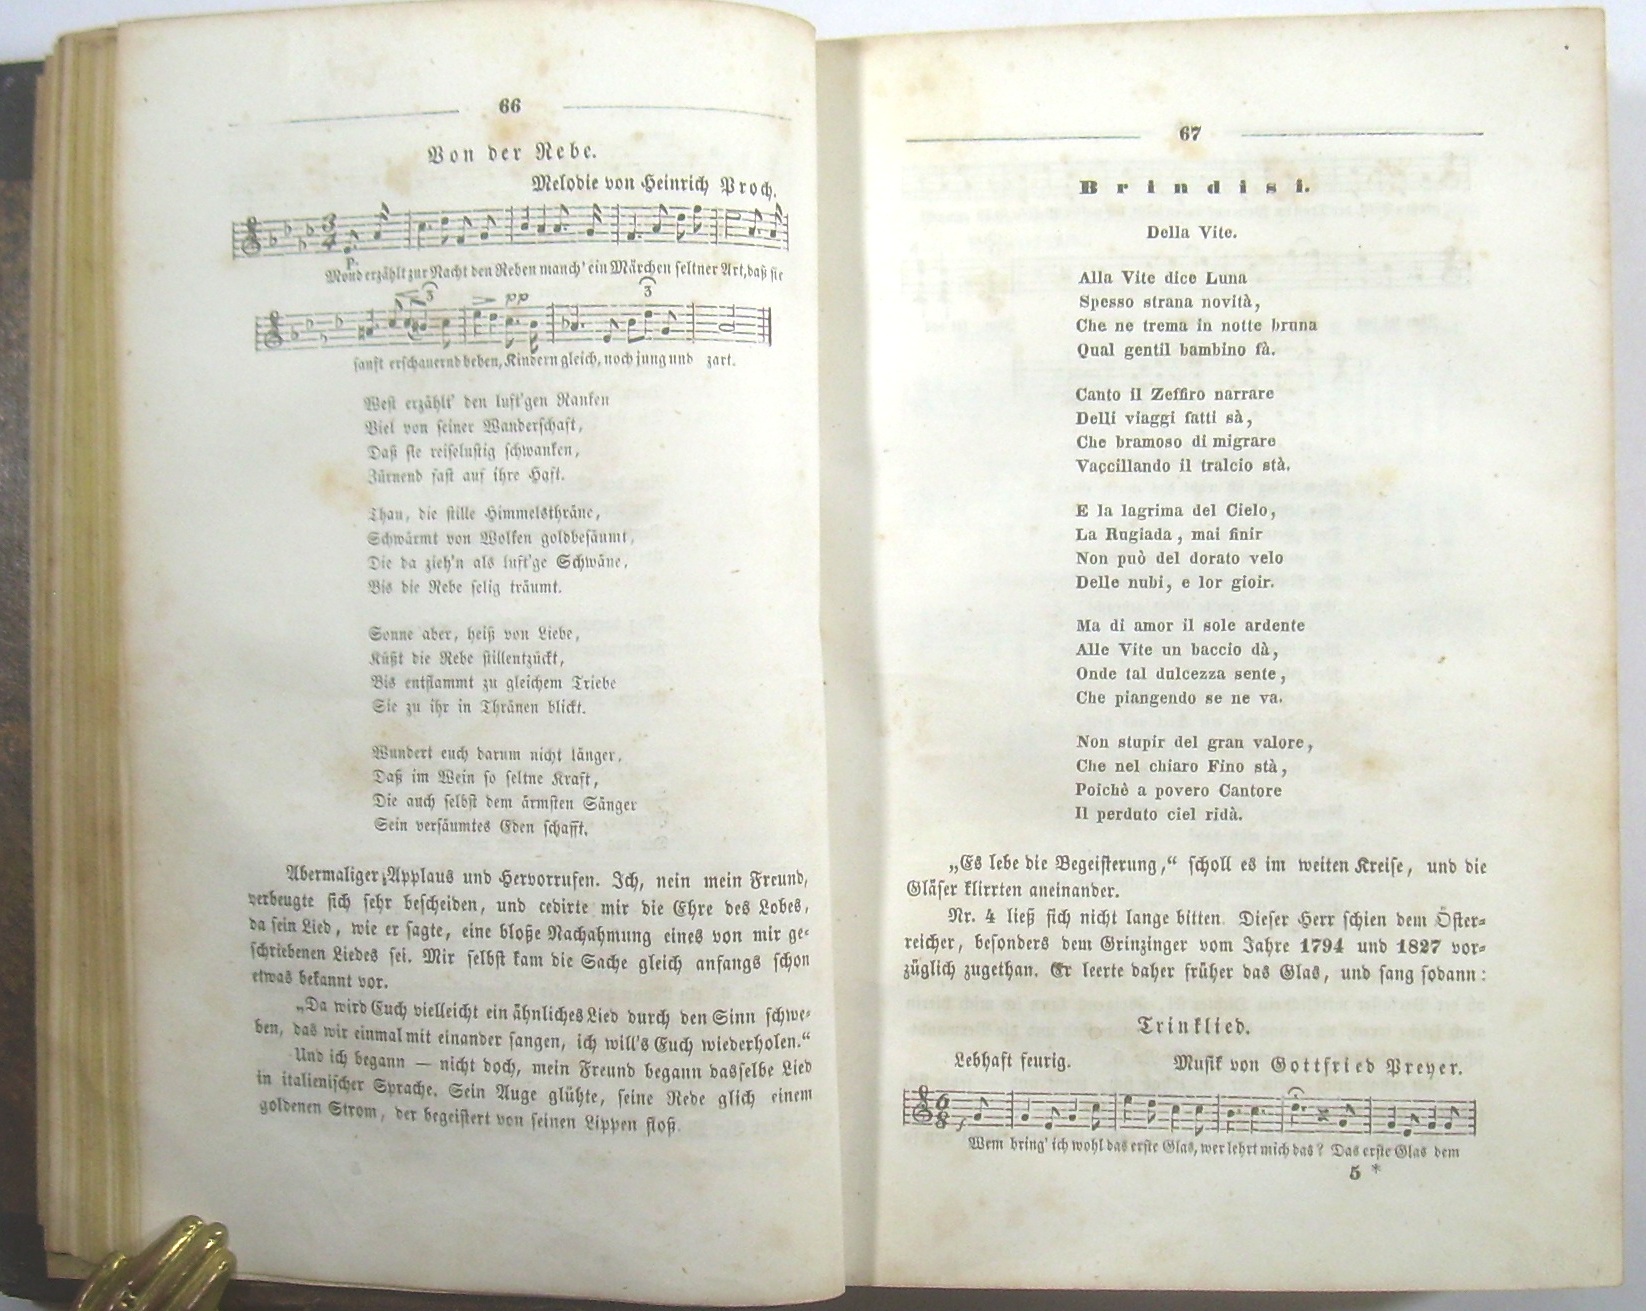 66
Von der Rebe.
Melodie von Heinrich Proch.
3
4
p.
Mond erzählt zur Nacht den Reben manch' ein Märchen seltner Art, daß sie
3
pp
3
sanft erschauernd beben, Kindern gleich, noch jung und zart.
West erzählt' den luft'gen Ranken
Viel von seiner Wanderschaft,
Daß sie reiselustig schwanken,
Zürnend fast auf ihre Haft.
Thau, die stille Himmelsthräne,
Schwärmt von Wolken goldbesäumt,
Die da zieh'n als luft'ge Schwäne,
Bis die Rebe selig träumt.
Sonne aber, heiß von Liebe,
Küßt die Rebe stillentzückt,
Bis entflammt zu gleichem Triebe
Sie zu ihr in Thränen blickt.
Wundert euch darum nicht länger,
Daß im Wein so seltne Kraft,
Die auch selbst dem ärmsten Sänger
Sein versäumtes Eden schafft.
Abermaliger Applaus und Hervorrufen. Ich, nein mein Freund,
verbeugte sich sehr bescheiden, und cedirte mir die Ehre des Lobes,
da sein Lied, wie er sagte, eine bloße Nachahmung eines von mir ge-
schriebenen Liedes sei. Mir selbst kam die Sache gleich anfangs schon
etwas bekannt vor.
„Da wird Euch vielleicht ein ähnliches Lied durch den Sinn schwe-
ben, das wir einmal mit einander sangen, ich will's Euch wiederholen.“
Und ich begann — nicht doch, mein Freund begann dasselbe Lied
in italienischer Sprache. Sein Auge glühte, seine Rede glich einem
goldenen Strom, der begeistert von seinen Lippen floß.
67
Brindisi.
Della Vite.
Alla Vite dice Luna
Spesso strana novità,
Che ne trema in notte bruna
Qual gentil bambino fà.
Canto il Zeffiro narrare
Delli viaggi fatti sà,
Che bramoso di migrare
Vaccillando il tralcio stà.
E la lagrima del Cielo,
La Rugiada, mai finir
Non può del dorato velo
Delle nubi, e lor gioir.
Ma di amor il sole ardente
Alle Vite un baccio dà,
Onde tal dulcezza sente,
Che piangendo se ne va.
Non stupir del gran valore,
Che nel chiaro Fino stà,
Poichè a povero Cantore
Il perduto ciel ridà.
„Es lebe die Begeisterung,“ scholl es im weiten Kreise, und die
Gläser klirrten aneinander.
Nr. 4 ließ sich nicht lange bitten. Dieser Herr schien dem Öster-
reicher, besonders dem Grinzinger vom Jahre 1794 und 1827 vor-
züglich zugethan. Er leerte daher früher das Glas, und sang sodann:
Trinklied.
Lebhaft feurig. Musik von Gottfried Preyer.
6
8
f
Wem bring' ich wohl das erste Glas, wer lehrt mich das? Das erste Glas dem
5 *